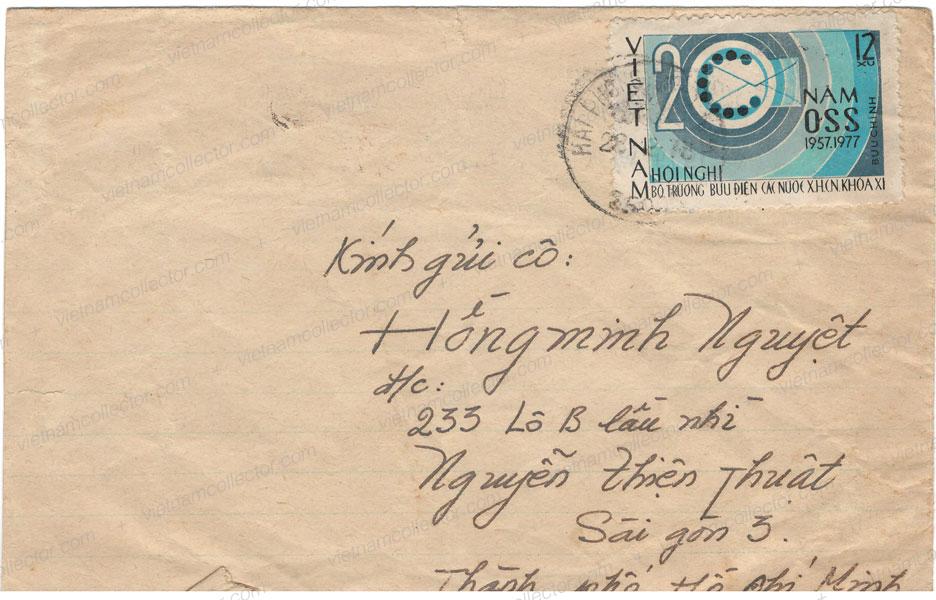 VIỆT NAM
20
12
XU
NĂM
OSS
1957.1977
BƯU CHÍNH
HỘI NGHỊ
BỘ TRƯỞNG BƯU ĐIỆN CÁC NƯỚC XHCN KHOÁ XI
HAI PHONG
Kính gửi cô:
Hồng minh Nguyệt
Đ/c:
233 Lô B lầu nhì
Nguyễn Thiện Thuật
Sài gòn 3.
Thành phố Hồ Chí Minh
vietnamcollector.com